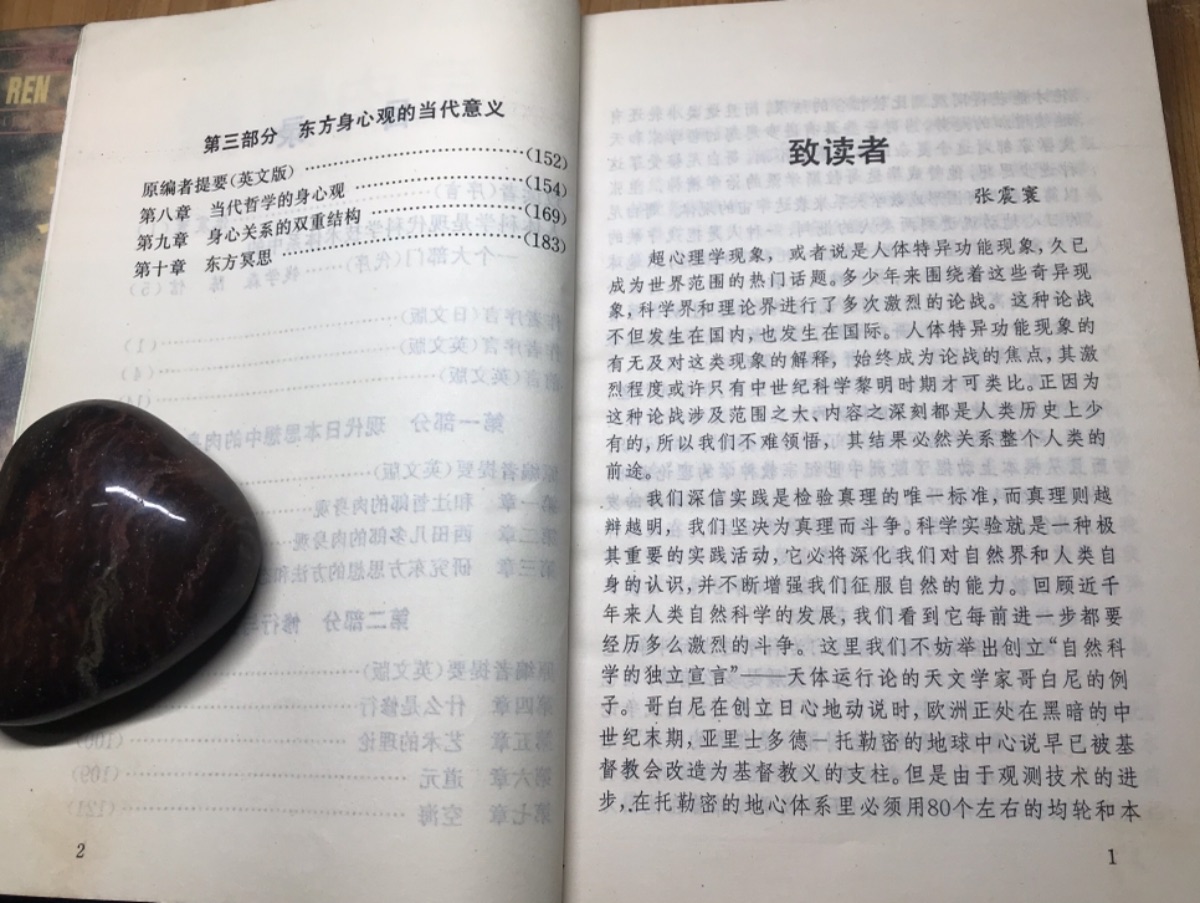 REN
第三部分 东方身心观的当代意义
原编者提要(英文版)……………………(152)
第八章 当代哲学的身心观……………………(154)
第九章 身心关系的双重结构……………………(169)
第十章 东方冥思……………………(183)
2
致读者
张震寰
超心理学现象，或者说是人体特异功能现象，久已
成为世界范围的热门话题。多少年来围绕着这些奇异现
象，科学界和理论界进行了多次激烈的论战。这种论战
不但发生在国内，也发生在国际。人体特异功能现象的
有无及对这类现象的解释，始终成为论战的焦点，其激
烈程度或许只有中世纪科学黎明时期才可类比。正因为
这种论战涉及范围之大、内容之深刻都是人类历史上少
有的，所以我们不难领悟，其结果必然关系整个人类的
前途。
我们深信实践是检验真理的唯一标准，而真理则越
辩越明，我们坚决为真理而斗争。科学实验就是一种极
其重要的实践活动，它必将深化我们对自然界和人类自
身的认识，并不断增强我们征服自然的能力。回顾近千
年来人类自然科学的发展，我们看到它每前进一步都要
经历多么激烈的斗争。这里我们不妨举出创立“自然科
学的独立宣言”——天体运行论的天文学家哥白尼的例
子。哥白尼在创立日心地动说时，欧洲正处在黑暗的中
世纪末期，亚里士多德—托勒密的地球中心说早已被基
督教会改造为基督教义的支柱。但是由于观测技术的进
步，在托勒密的地心体系里必须用80个左右的均轮和本
1